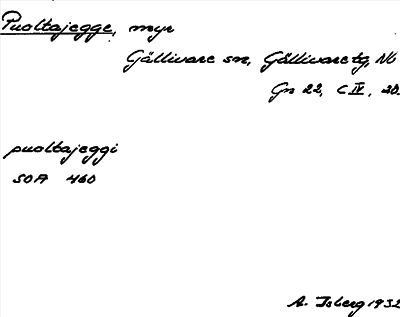 Puoltajegge, myr
Gällivare sn, Gällivare tg, Nb
Gn 22, C IV, 28.
puoltajeggi
SOA 460
A. Isberg 1932